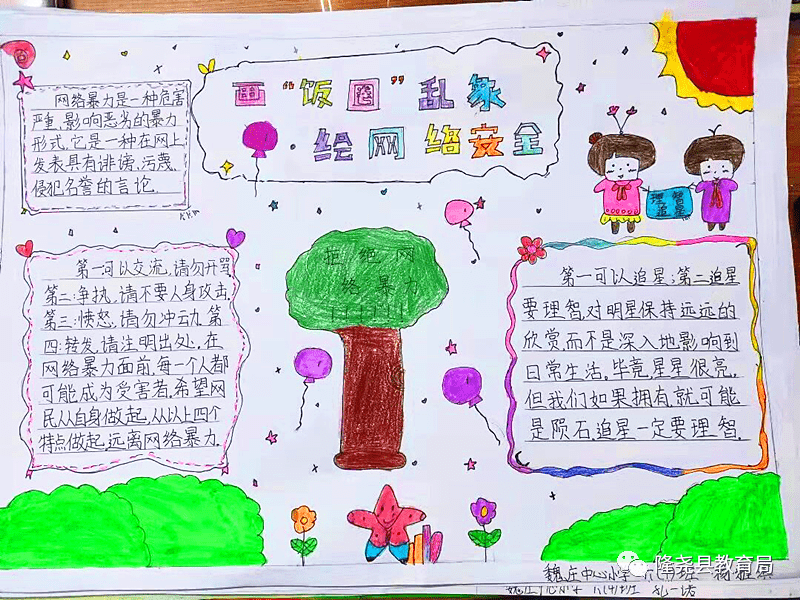 画“饭圈”乱象
绘网络安全
网络暴力是一种危害
严重,影响恶劣的暴力
形式,它是一种在网上
发表具有诽谤,污蔑,
侵犯名誉的言论.
理智
追星
拒绝网
络暴力
!!!!!!
第一可以交流,请勿开骂
第二:争执,请不要人身攻击.
第三:愤怒,请勿冲动.第
四:转发,请注明出处,在
网络暴力面前,每一个人都
可能成为受害者,希望网
民从自身做起,从以上四个
特点做起,远离网络暴力.
第一可以追星;第二追星
要理智,对明星保持远远的
欣赏而不是深入地影响到
日常生活,毕竟,星星很亮,
但我们如果拥有,就可能
是陨石,追星一定要理智.
魏庄中心小学
隆尧县教育局